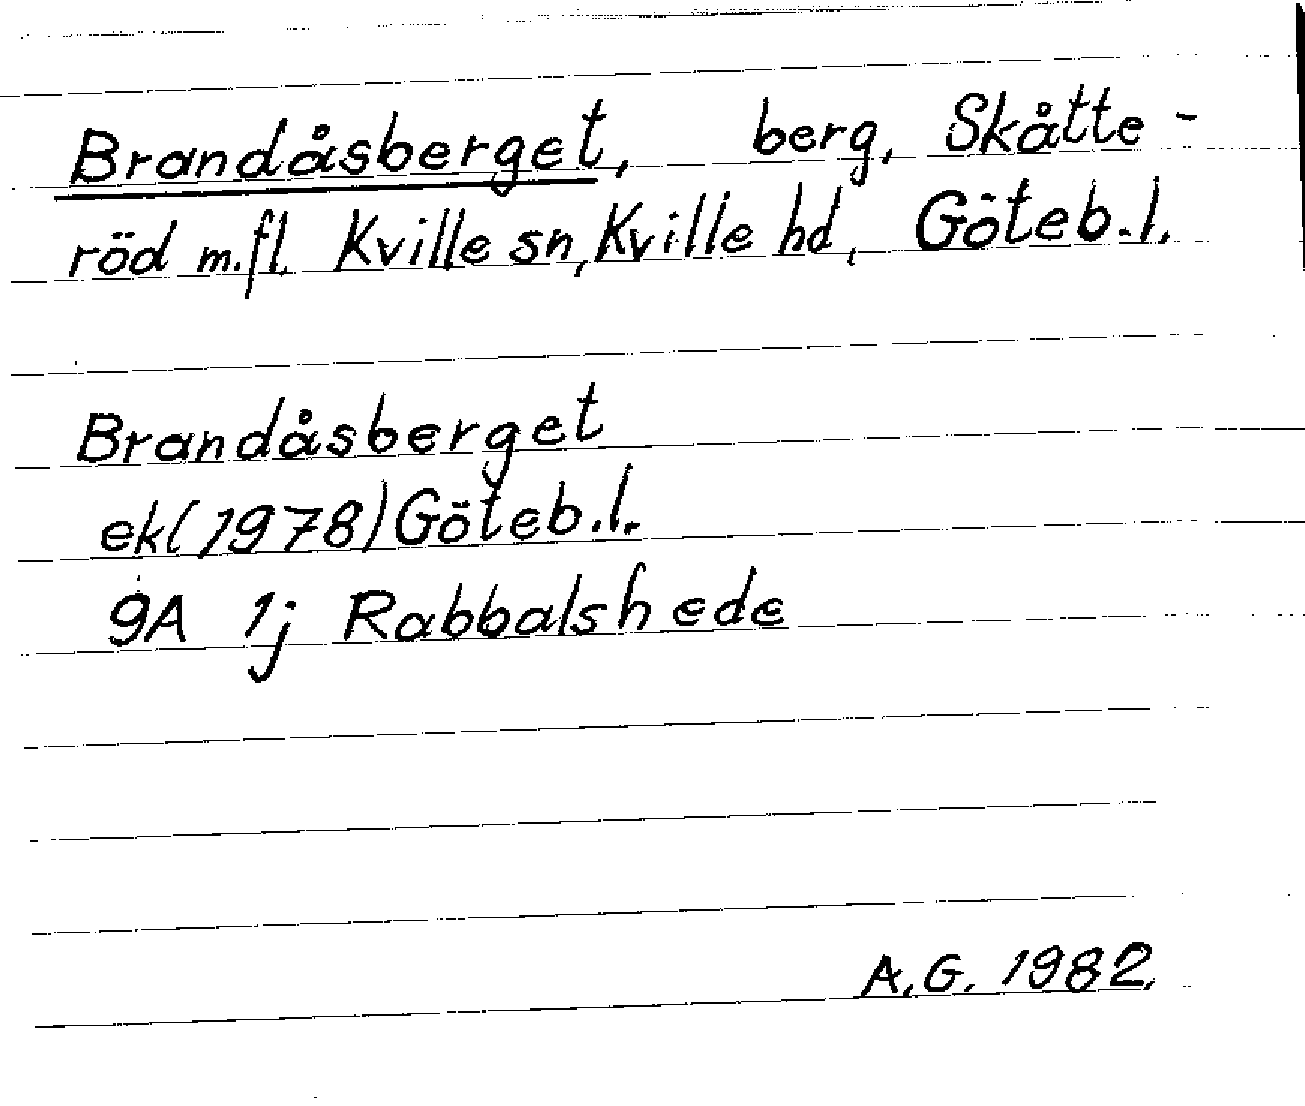 Brandåsberget, berg, Skåtte-
röd m.fl. Kville sn, Kville hd, Göteb.l.
Brandåsberget
ekl (1978) Göteb.l.
9A 1j Rabbalshede
A.G. 1982.